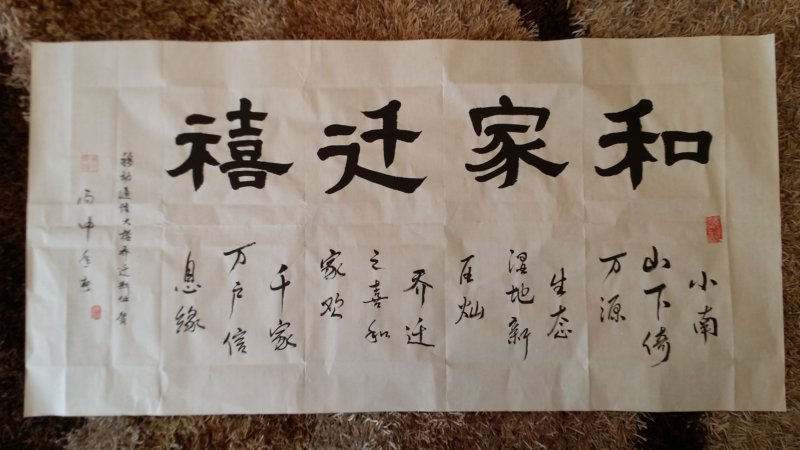 和家迁禧
小南
山下倚
万源
生态
湿地新
区灿
乔迁
之喜和
家欢
千家
万户信
息缘
通信大楼乔迁新址贺
丙申